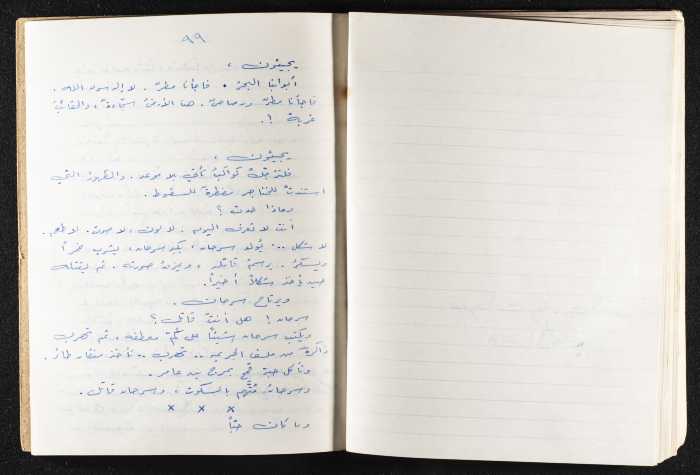 ٩٩
يجيئون ،
أبوابنا البحرُ . فاجأنا مطرٌ . لا إله سوى الله .
فاجأنا مطرٌ ورصاصٌ . هنا الأرضُ سجّادةٌ ، والحقائبُ
غربة !.
يجيئون ،
فلتترجّلْ كواكبُ تأتي بلا موعد . والظهورُ التي
استندتْ للخناجر مضطرةٌ للسقوط .
وماذا حدث ؟
أنت لا تعرف اليوم . لا لون ، لا صوت . لا طعم .
لا شكل ... يُولد سرحان ، يكبر سرحان ، يشرب خمراً
ويسكرُ . يرسمُ قاتله ، ويمزقُ صورته . ثم يقتله
حين يأخذ شكلاً أخيراً .
ويرتاح سرحان .
سرحان ! هل أنتَ قاتل ؟
ويكتب سرحان شيئاً على كُمّ معطفه ، ثم تهرب
ذاكرةٌ من ملف الجريمة .. تهرب .. تأخذ منقار طائر .
وتأكل حبة قمح بمرج بن عامر .
وسرحانُ مُتّهم بالسكوت ، وسرحان قاتل .
x x x
وما كان حبّاً